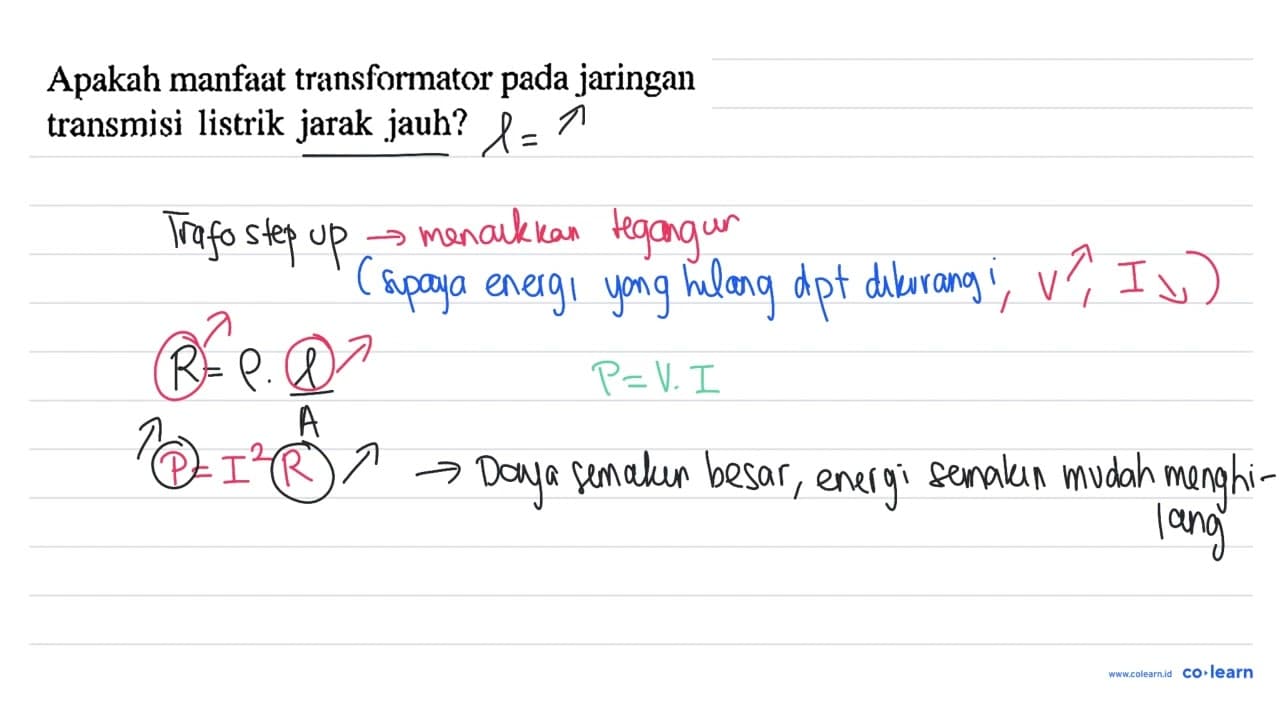 Apakah manfaat transformator pada jaringan
transmisi listrik jarak jauh? l = ↗
Trafo step up → menaikkan tegangan
(supaya energi yang hilang dpt dikurangi, V↗, I↘)
R↗ = ρ. l↗
A
P = V. I
↗P = I²R↗ → Daya semakin besar, energi semakin mudah menghi-
lang
www.colearn.id co·learn